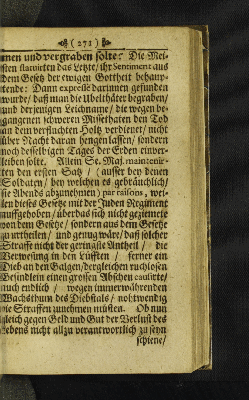 (271)
nen und vergraben solte: Die Mei-
sten statuirten das Letzte / ihr Sentiment aus
dem Gesetz der ewigen Gottheit behaup-
tende: Dann expresse darinnen gefunden
wurde / daß man die Ubelthäter begraben /
und derjenigen Leichname / die wegen be-
gangenen schweren Missethaten den Tod
an dem verfluchten Holtz verdienet / nicht
über Nacht daran hengen lassen / sondern
noch desselbigen Tages der Erden einver-
leiben solte. Allein Se. Maj. maintenir-
ten den ersten Satz / (ausser bey denen
Soldaten / bey welchen es gebräuchlich /
sie Abends abzunehmen) par raisons, wei-
len dieses Gesetz mit der Juden Regiment
auffgehoben / über das sich nicht geziemete
von dem Gesetz / sondern aus dem Gesetze
zu urtheilen / und genug wäre / daß solcher
Straffe nicht der geringste Antheil / die
Verwesung in den Lüfften / ferner ein
Dieb an den Galgen / dergleichen ruchlosen
Gesindlein einen grossen Abscheu causirte /
auch endlich / wegen immerwährenden
Wachsthum des Diebstals / nothwendig
die Straffen zunehmen müsten. Ob nun
gleich gegen Geld und Gut der Verlust des
Lebens nicht allzu verantwortlich zu seyn
schiene /